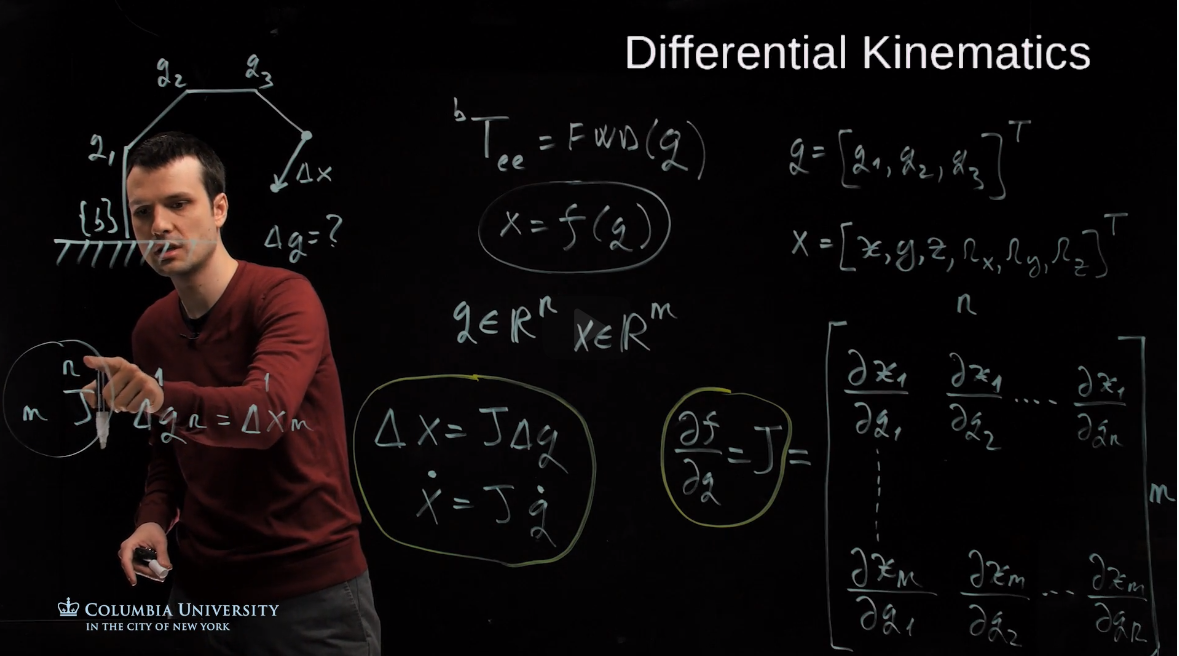 Differential Kinematics
q₂ q₃
q₁
Δx
{b}
Δq=?
ᵇT_ee = FWD(q)
x = f(q)
q∈ℝⁿ x∈ℝᵐ
q = [q₁, q₂, q₃]ᵀ
x = [x, y, z, r_x, r_y, r_z]ᵀ
n 1 1
m J Δq n = Δx m
Δx = JΔq
ẋ = J q̇
∂f/∂q = J =
n
∂x₁/∂q₁ ∂x₁/∂q₂ .... ∂x₁/∂qₙ
m
∂xₘ/∂q₁ ∂xₘ/∂q₂ ... ∂xₘ/∂qₙ
COLUMBIA UNIVERSITY
IN THE CITY OF NEW YORK